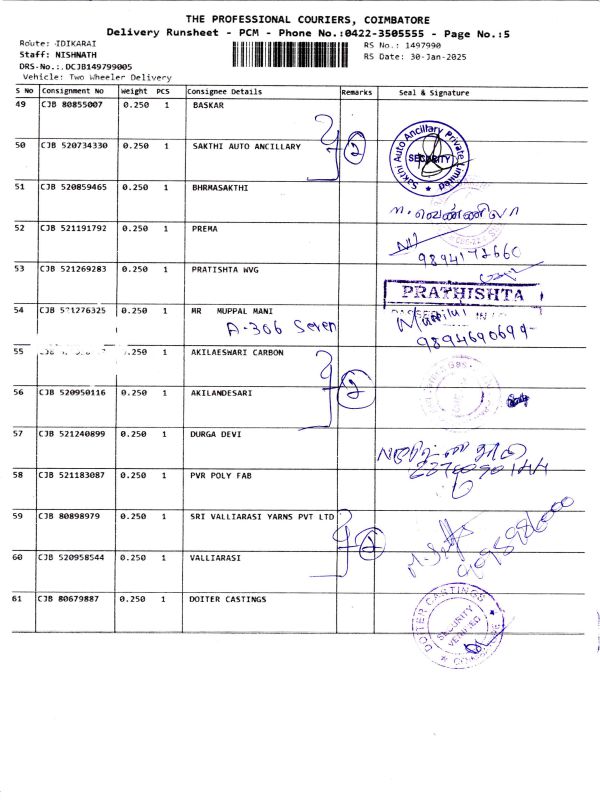 THE PROFESSIONAL COURIERS, COIMBATORE
Delivery Runsheet - PCM - Phone No.:0422-3505555 - Page No.:5
Route: IDIKARAI
RS No.: 1497990
Staff: NISHNATH
RS Date: 30-Jan-2025
DRS-No.:.DCJB149799005
Vehicle: Two Wheeler Delivery
S No Consignment No Weight PCS Consignee Details Remarks Seal & Signature
49 CJB 80855007 0.250 1 BASKAR
50 CJB 520734330 0.250 1 SAKTHI AUTO ANCILLARY 2
Sakthi Auto Ancillary Private Limited
SECURITY
51 CJB 520859465 0.250 1 BHRMASAKTHI
52 CJB 521191792 0.250 1 PREMA
9894172660
53 CJB 521269283 0.250 1 PRATISHTA WVG
PRATHISHTA
54 CJB 521276325 0.250 1 MR MUPPAL MANI
A-306 Seven
9894690699
55 0.250 1 AKILAESWARI CARBON
56 CJB 520950116 0.250 1 AKILANDESARI 2
57 CJB 521240899 0.250 1 DURGA DEVI
58 CJB 521183087 0.250 1 PVR POLY FAB
59 CJB 80898979 0.250 1 SRI VALLIARASI YARNS PVT LTD
60 CJB 520958544 0.250 1 VALLIARASI 2
61 CJB 80679887 0.250 1 DOITER CASTINGS
DOITER CASTINGS
SECURITY
VERIFIED